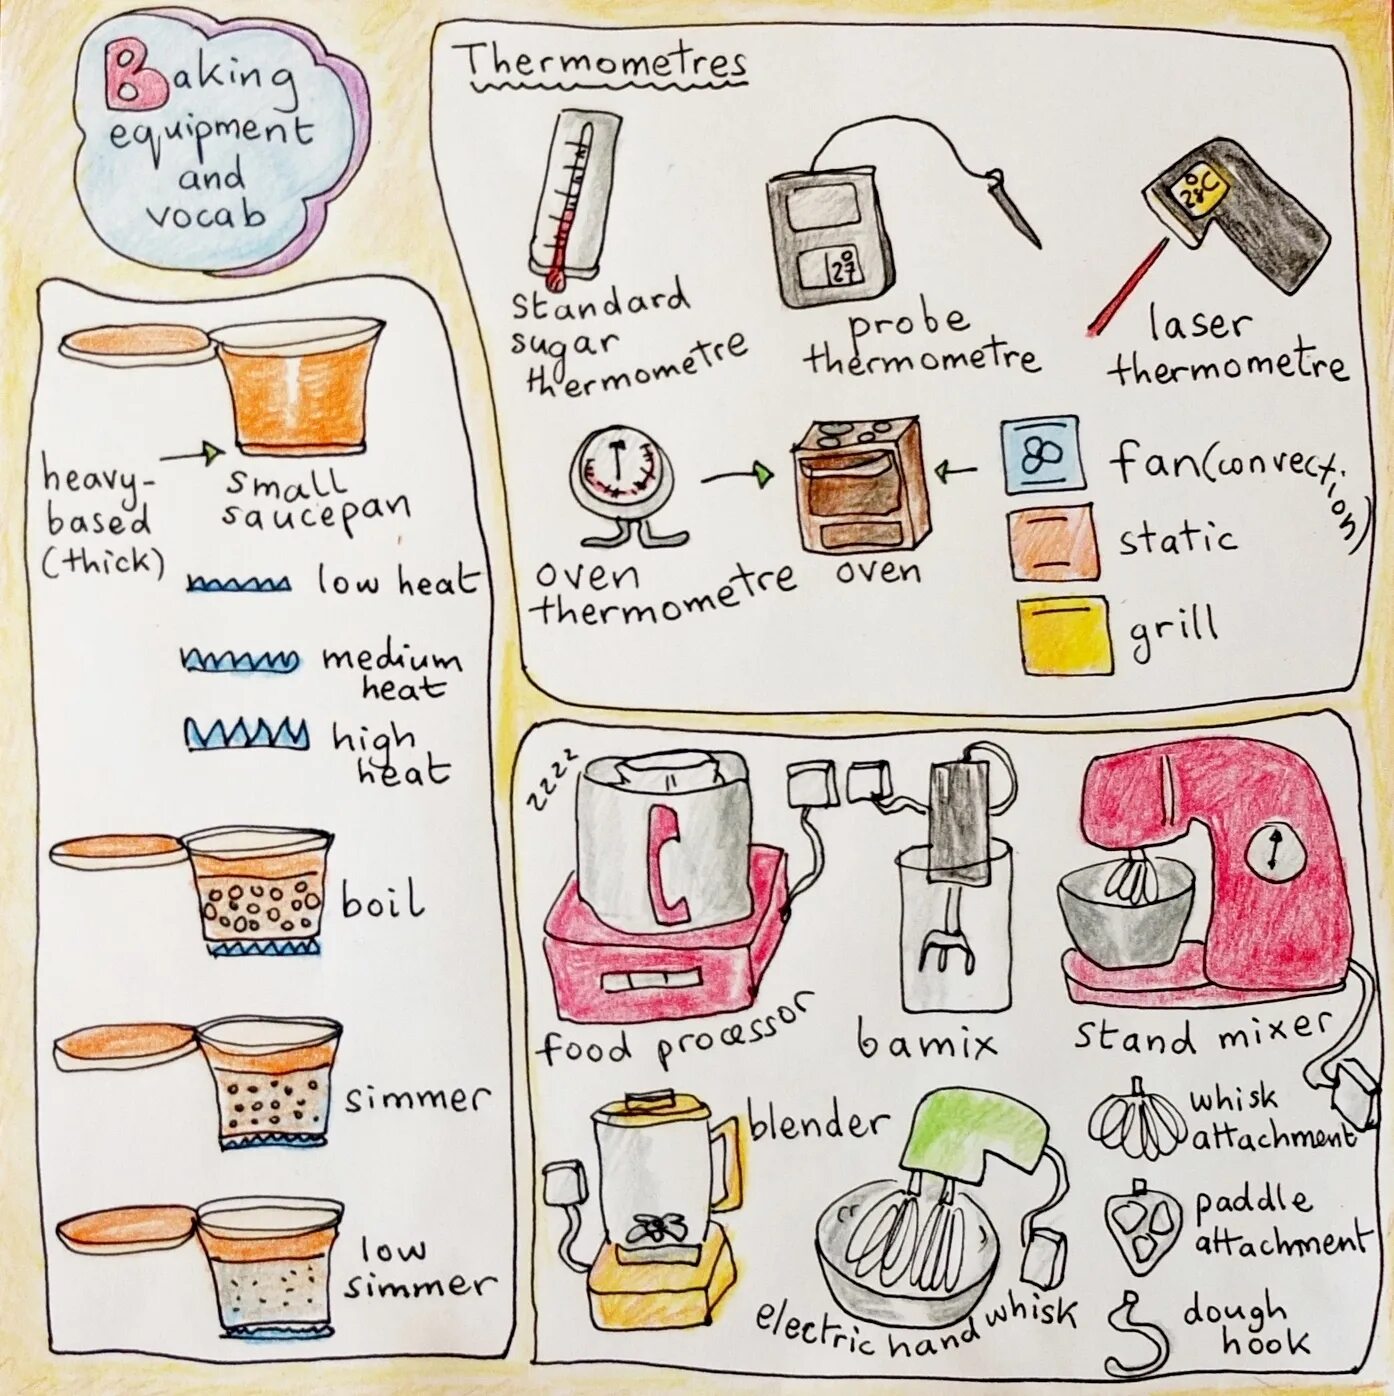 Baking
equipment
and
vocab
Thermometres
standard
sugar
thermometre
27
probe
thermometre
28°C
laser
thermometre
oven
thermometre
oven
fan (convection)
static
grill
heavy-
based
(thick)
small
saucepan
low heat
medium
heat
high
heat
boil
simmer
low
simmer
zzzz
food processor
bamix
stand mixer
blender
electric hand whisk
whisk
attachment
paddle
attachment
dough
hook